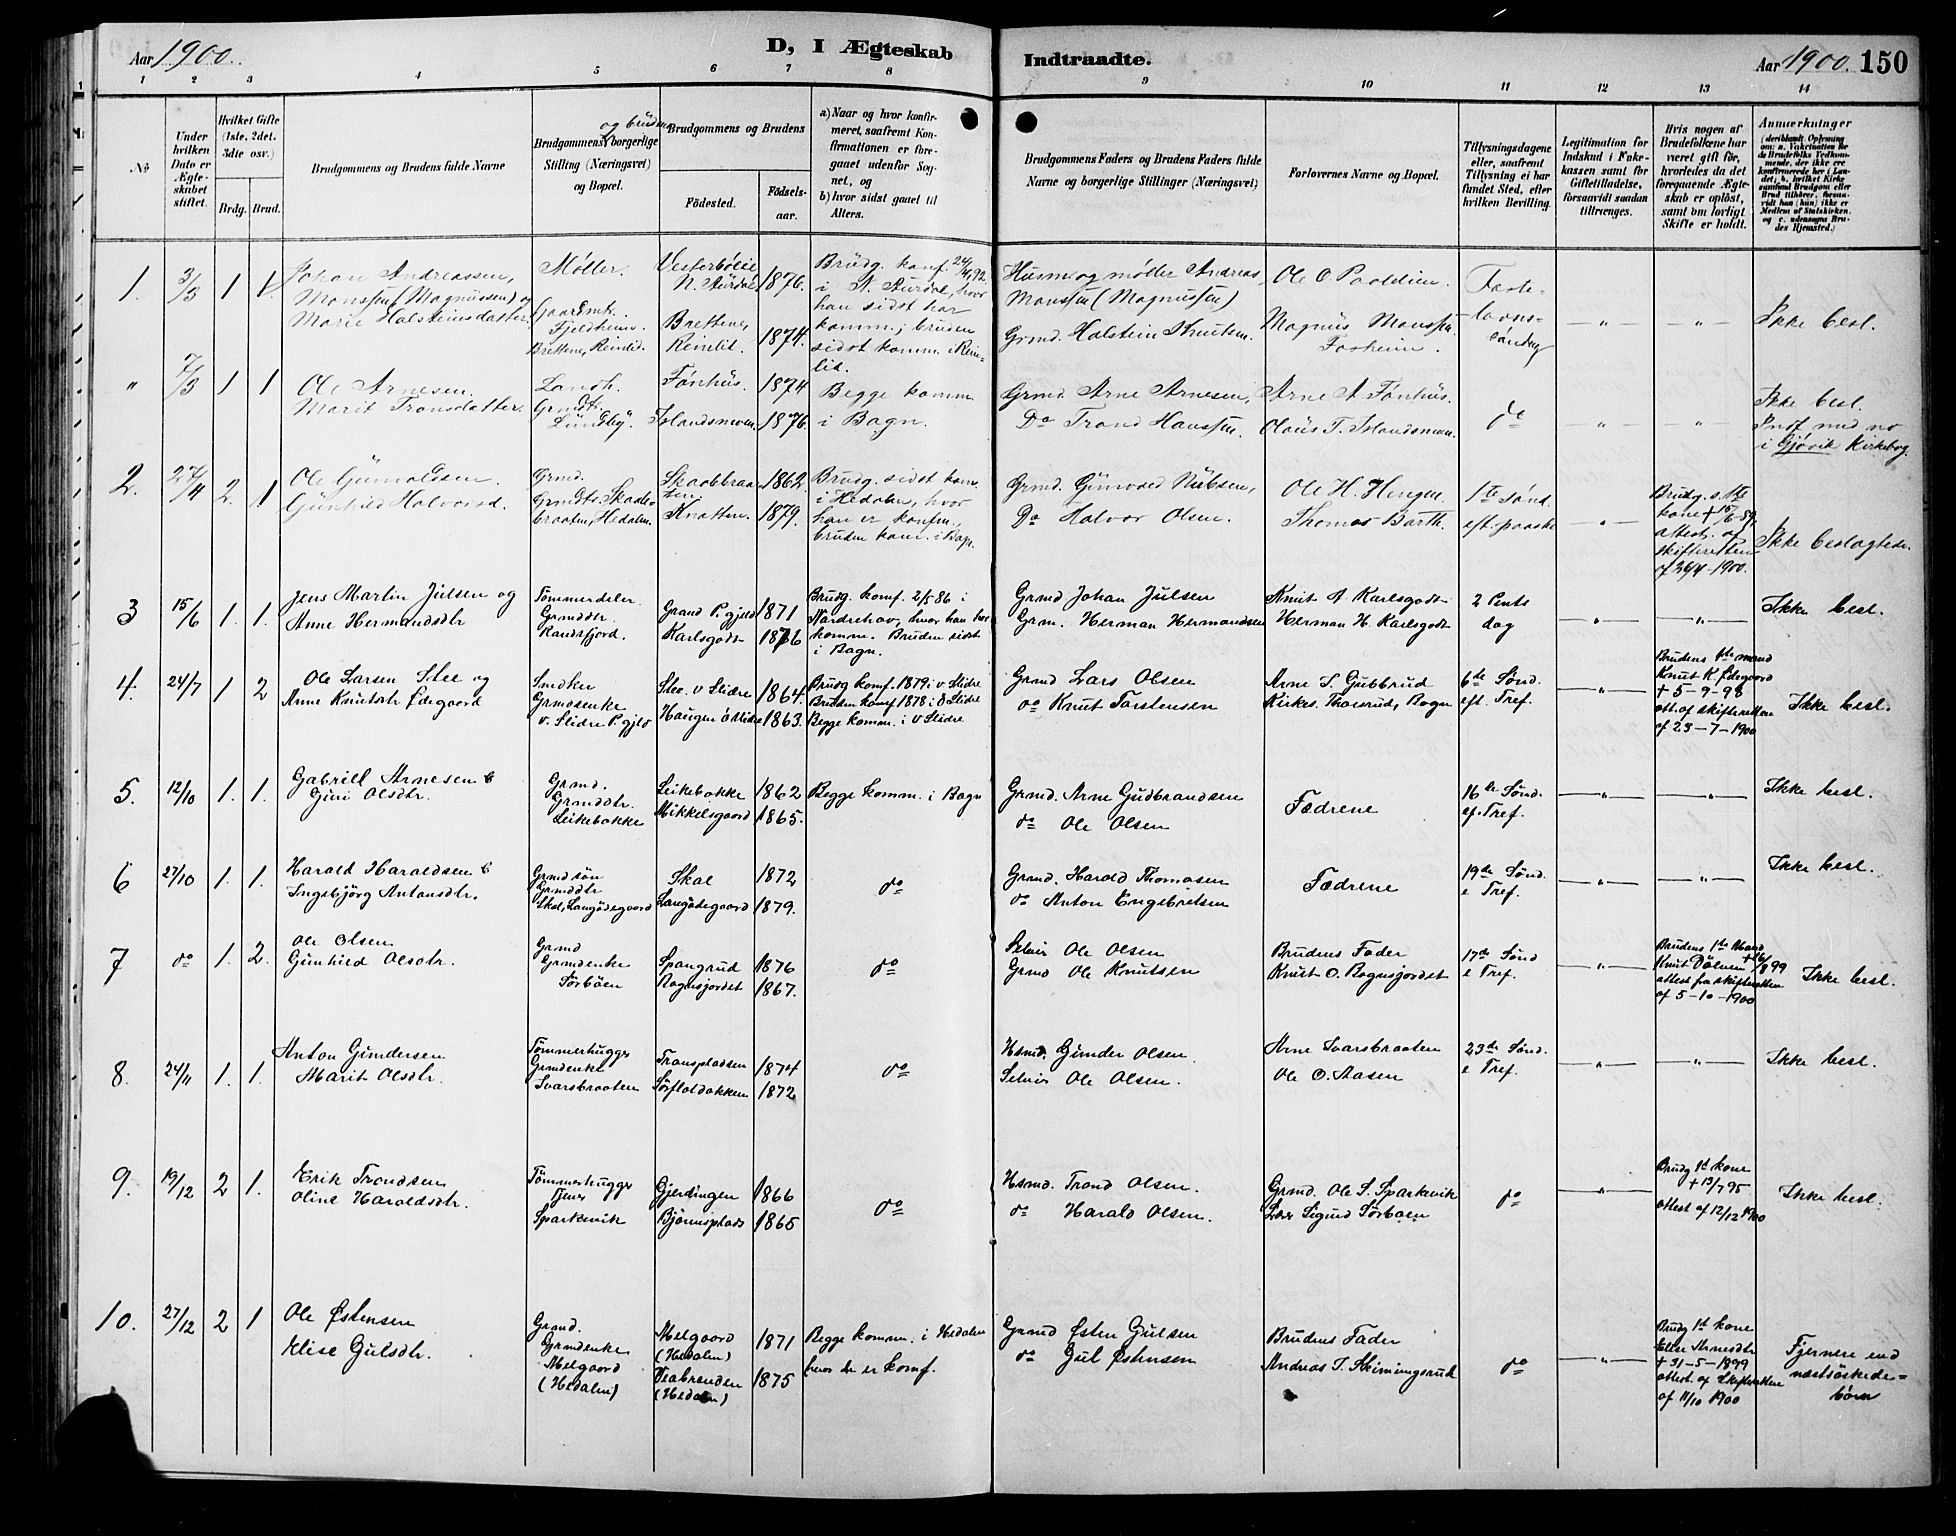 Aar 1900.
D, I Ægteskab
Indtraadte.
Aar 1900. 150
1 2 3 4 5 6 7 8 9 10 11 12 13 14
No
Under hvilken Dato er Ægteskabet stiftet.
Hvilket Gifte (1ste, 2det, 3die osv.)
Brdg. Brud.
Brudgommens og Brudens fulde Navne
Brudgommens og brudens borgerlige Stilling (Næringsvei) og Bopæl.
Brudgommens og Brudens
Fødested.
Fødselsaar.
a) Naar og hvor konfirmeret, saafremt Konfirmationen er foregaaet udenfor Sognet, og
b) hvor sidst gaaet til Alters.
Brudgommens Faders og Brudens Faders fulde Navne og borgerlige Stillinger (Næringsvei)
Forlovernes Navne og Bopæl.
Tillysningsdagene eller, saafremt Tillysning ei har fundet Sted, efter hvilken Bevilling.
Legitimation for Indskud i Enkekassen samt for Giftetilladelse, forsaavidt saadan tiltrænges.
Hvis nogen af Brudefolkene har været gift før, hvorledes da det foregaaende Ægteskab er opløst, samt om lovligt Skifte er holdt.
Anmærkninger
(deriblandt Oplysning om: a. Vakcination for de Brudefolks Vedkommende, der ikke ere konfirmerede her i Landet; b. hvilket Kirkesamfund Brudgom eller Brud tilhører, forsaavidt han (hun) ikke er Medlem af Statskirken, og c. udensogns Brudes Hjemsted.)
1. 3/3 1 1.
Johan Andreassen,
Monssen (Magnussen) og
Marie Holsteinsdatter.
Møller.
Gaardmdtr.
Fjeldheim.
Brettene, Reinlid.
N. Aurdal 1876.
Brettene,
Reinlid. 1874.
Brudg. konf. 24/4 92
i N. Aurdal, hvor
han sidst har
komm.; bruden
sidst komm. i Reinlid.
Husm. og møller Andreas
Monssen (Magnussen)
Grmd. Holstein Knutsen.
Magnus Monssen
Fosheim.
Fastelavnssøndag
— " — — " — Ikke besl.
" 7/3 1 1
Ole Arnesen.
Marit Tronsdatter.
Landh.
Grmdtr.
Lundby.
Fønhus. 1874
Islandsmoen. 1876.
Begge komm.
i Bagn.
Grmd. Arne Arnesen,
Do Trond Hanssen.
Arne A. Fønhus.
Olaus T. Islandsmoen.
do
— " — "
Ikke besl.
Indf. med no
i Gjøvik Kirkebog.
2. 27/4 2. 1
Ole Gunvaldsen.
Gunhild Halvorsd.
Grmd.
Grmdtr. Skaabraaten, Hedalen.
Skaabraaten 1862.
Knatten. 1879.
Brudg. sidst kom.
i Hedalen, hvor
han er konfm.,
bruden kom. i Bagn.
Grmd. Gunvald Nubsen,
Do Halvor Olsen.
Ole H. Hengen
Thomas Barth.
1ste sønd.
eft. paaske
— " —
Brudg. s. 1te
kone + 15/6-89,
attest. af
skifteretten
af 26/4-1900.
Ikke beslægtede.
3 15/6 1. 1.
Jens Martin Julsen og
Anne Hermandsdtr
Tømmerdeler.
Grmddtr.
Randsfjord.
Grand P.gjeld 1871
Karlsgodt 1876
Brudg. konf. 2/5 86 i
Nordrehov, hvor han har
komm. Bruden sidst
i Bagn.
Grmd Johan Julsen
Grm. Herman Hermandsen
Knut A. Karlsgodt
Herman H. Karlsgodt
2 Pintsdag
— " — — " — Ikke besl.
4. 24/7 1 2
Ole Larsen Stee og
Anne Knutsdtr Ødegaard
Snedker
Grmdsenke
V. Slidre P.gjeld
Stee. V Slidre 1864.
Haugen Ø Slidre 1863.
Brudg konf. 1879 i V Slidre
Bruden konf 1878 i Ø Slidre
Begge komm. i V Slidre
Grmd Lars Olsen
do Knut Torstensen
Arne S. Gubbrud
Kirkes. Thoesrud, Bagn
6te Sønd.
eft. Tref.
— " —
Brudens 1te mand
Knut K Ødegaard
+ 5-9-98
att. af skifteretten
af 23-7-1900
Ikke besl.
5. 12/10 1. 1.
Gabriell Arnesen &
Guri Olsdtr.
Grmd.
Grmddtr.
Leikebakke
Leikebakke 1862
Mikkelsgaard 1865.
Begge komm. i Bagn
Grmd. Arne Gudbrandsen
do Ole Olsen
Fædrene
16de Sønd.
ef. Tref.
— " — — " — Ikke besl.
6 27/10 1. 1.
Harald Haraldsen &
Ingebjørg Antonsdtr.
Grmdsøn
Grmddtr
Skol, Langødegaard
Skol 1872
Langødegaard 1879.
do
Grmd. Harald Thomasen
do Anton Engebretsen
Fædrene
19de Sønd.
e Tref.
— " — — " — Ikke besl.
7 do 1. 2.
Ole Olsen
Gunhild Olsdtr.
Grmd
Grmdenke
Sørbøen
Spangrud 1876
Bagnsjordet 1867.
do
Selvei Ole Olsen
Grmd Ole Knutsen
Brudens Fader
Knut O. Bagnsjordet
17de Sønd
e Tref.
— " —
Brudens 1te Mand
Knut Dølven
attest fra skifteretten
af 5-10-1900
Ikke besl.
8. 24/11 1. 1.
Anton Gundersen
Marit Olsdtr.
Tømmerhugger
Grmdenke
Svarsbraaten
Tronspladsen 1874
Sørflatbakken 1872
do
Hsmd. Gunder Olsen.
Selvei Ole Olsen.
Arne Svarsbraaten
Ole O. Aasen
23de Sønd.
e Tref.
— " — — " — Ikke besl.
9. 19/12 2 1.
Erik Trondsen
Oline Haraldsdtr.
Tømmerhugger
Tjener
Sparkevik
Gjerdingen 1866
Bjørnsplads 1865
do
Hsmd. Trond Olsen.
do Harald Olsen.
Grmd. Ole S. Sparkevik
Lær Sigurd Sørbøen
do
— " —
Brudg 1st kone
+ 13/7 95
attest af 12/12 1900
Ikke besl.
10. 27/12 2 1
Ole Østensen
Elise Gulsdtr.
Grmd.
Grmdenke
Melgaard
(Hedalen)
Melgaard
(Hedalen) 1871
Veabrenden
(Hedalen) 1875
Begge komm. i Hedalen
hvor de er konf.
Grmd Østen Gulsen
do Gul Østensen
Brudens Fader
Andreas T. Skinningsrud
do
— " —
Brudg 1st kone
Eller Arnesdtr
+ 31-5-1899
attest. af Skifteretten
af 11/10 1900
Fjernere end
næstsøskendebørn